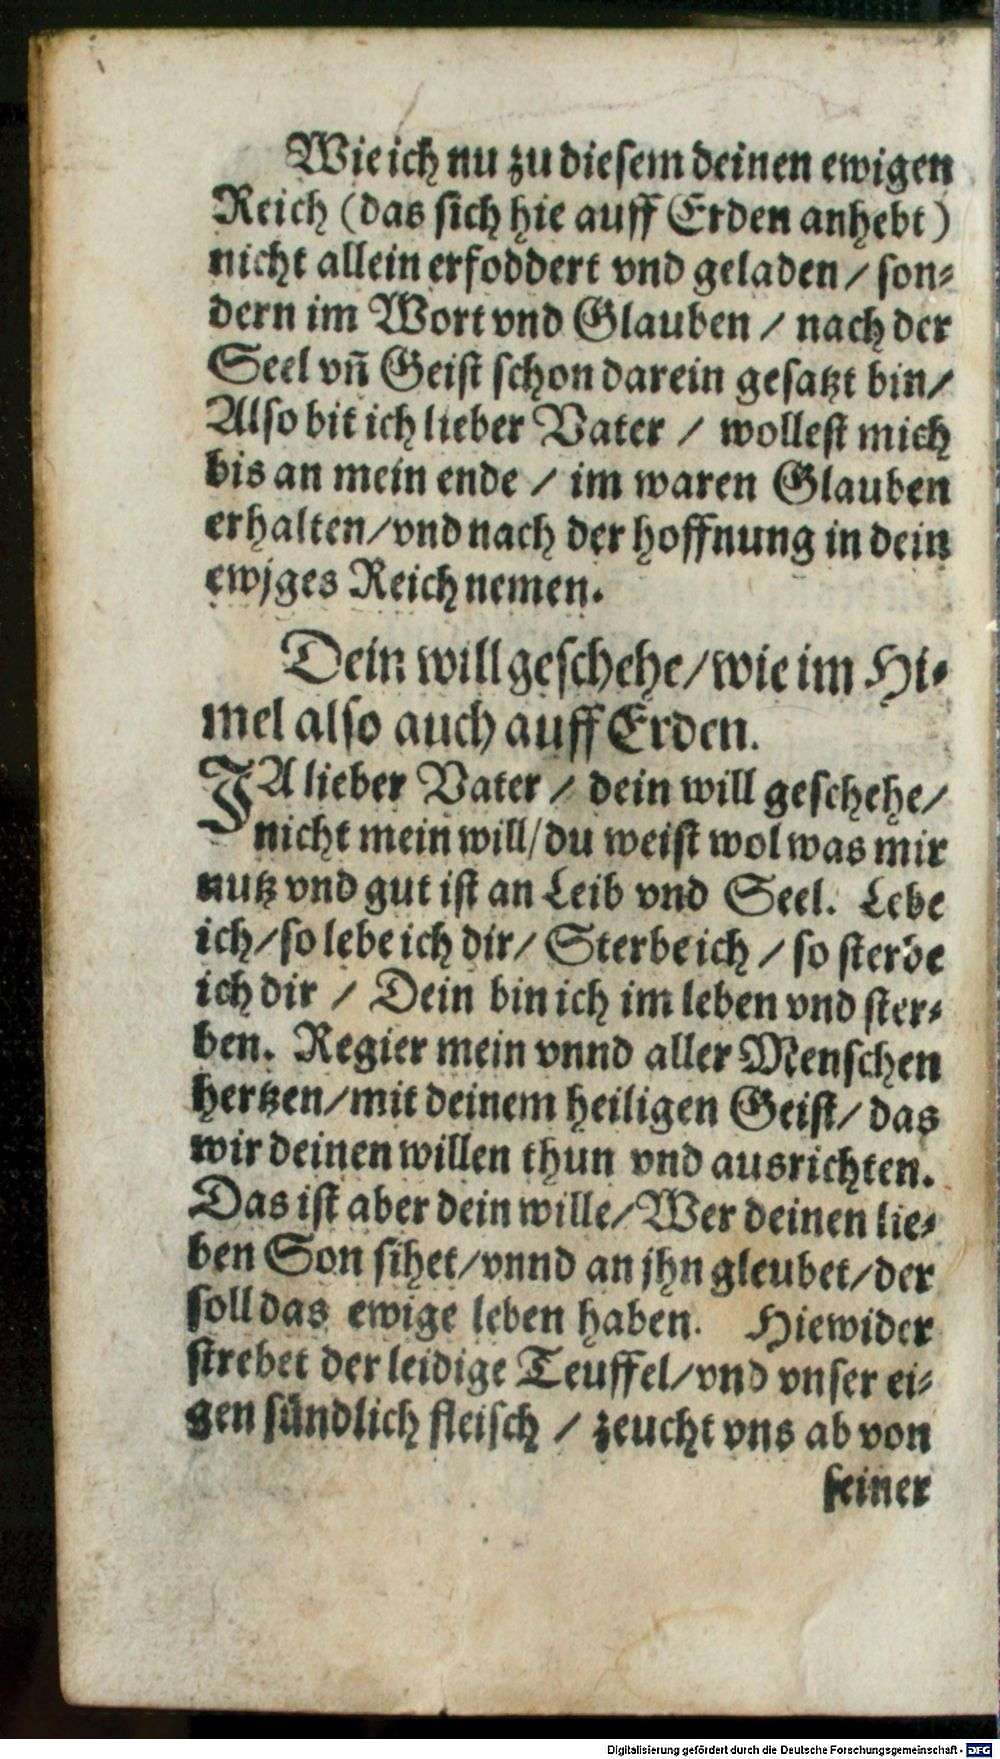 Wie ich nu zu diesem deinen ewigen
Reich (das sich hie auff Erden anhebt)
nicht allein erfoddert vnd geladen / son⸗
dern im Wort vnd Glauben / nach der
Seel vn̄ Geist schon darein gesatzt bin/
Also bit ich lieber Vater / wollest mich
bis an mein ende / im waren Glauben
erhalten/vnd nach der hoffnung in dein
ewjges Reich nemen.
Dein will geschehe/wie im Hi⸗
mel also auch auff Erden.
JA lieber Vater / dein will geschehe/
nicht mein will/du weist wol was mir
nutz vnd gut ist an Leib vnd Seel. Lebe
ich/so lebe ich dir/ Sterbe ich / so sterbe
ich dir / Dein bin ich im leben vnd ster⸗
ben. Regier mein vnnd aller Menschen
hertzen/mit deinem heiligen Geist/ das
wir deinen willen thun vnd ausrichten.
Das ist aber dein wille/Wer deinen lie⸗
ben Son sihet/vnnd an jhn gleubet/der
soll das ewige leben haben. Hiewider
strebet der leidige Teuffel/vnd vnser ei⸗
gen sündlich fleisch / zeucht vns ab von
seiner
Digitalisierung gefördert durch die Deutsche Forschungsgemeinschaft - DFG